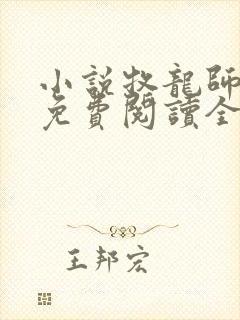 小說牧龍師
免費閱讀全
王邦宏